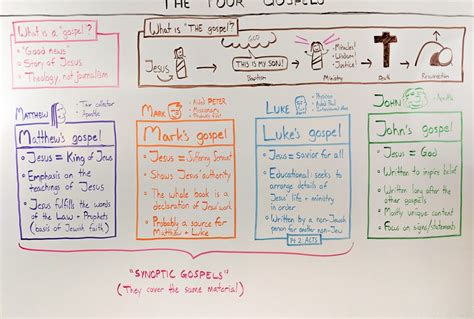 THE FOUR GOSPELS
What is a "gospel"?
• "Good news"
• Story of Jesus
• Theology, not journalism
What is "THE gospel"?
GOD
Jesus
THIS IS MY SON!
Miracles!
Wisdom!
Justice!
Baptism
Ministry
Death
Resurrection
MATTHEW
• Tax collector
• Apostle
Matthew's gospel
• Jesus = King of Jews
• Emphasis on the
teachings of Jesus
• Jesus fulfills the words
of the Law + Prophets
(basis of Jewish faith)
MARK
• Aided PETER
• Missionary
Mark's gospel
• Jesus = Suffering Servant
• Shows Jesus' authority
• The whole book is a
declaration of Jesus' work
• Probably a source for
Matthew + Luke
LUKE
• Physician
• Aided Paul
Luke's gospel
• Jesus = Savior for all
• Educational: seeks to
arrange details of
Jesus' life + ministry
in order
• Written by a non-Jewish
person for another non-Jew
Pt 2: ACTS
JOHN
• Apostle
John's gospel
• Jesus = God
• Written to inspire belief
• Written long after the
other gospels
• Mostly unique content
• Focus on signs/statements
"SYNOPTIC GOSPELS"
(They cover the same material)